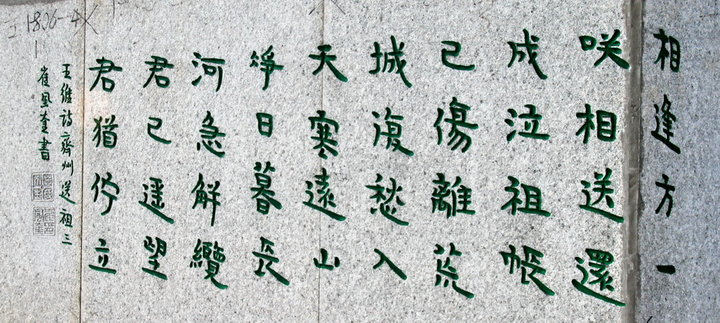 相逢方一
咲相送還
成泣祖帳
已傷離荒
城復愁入
天寒遠山
淨日暮長
河急解纜
君已遥望
君猶佇立
王維詩齊州送祖三
崔風奎書